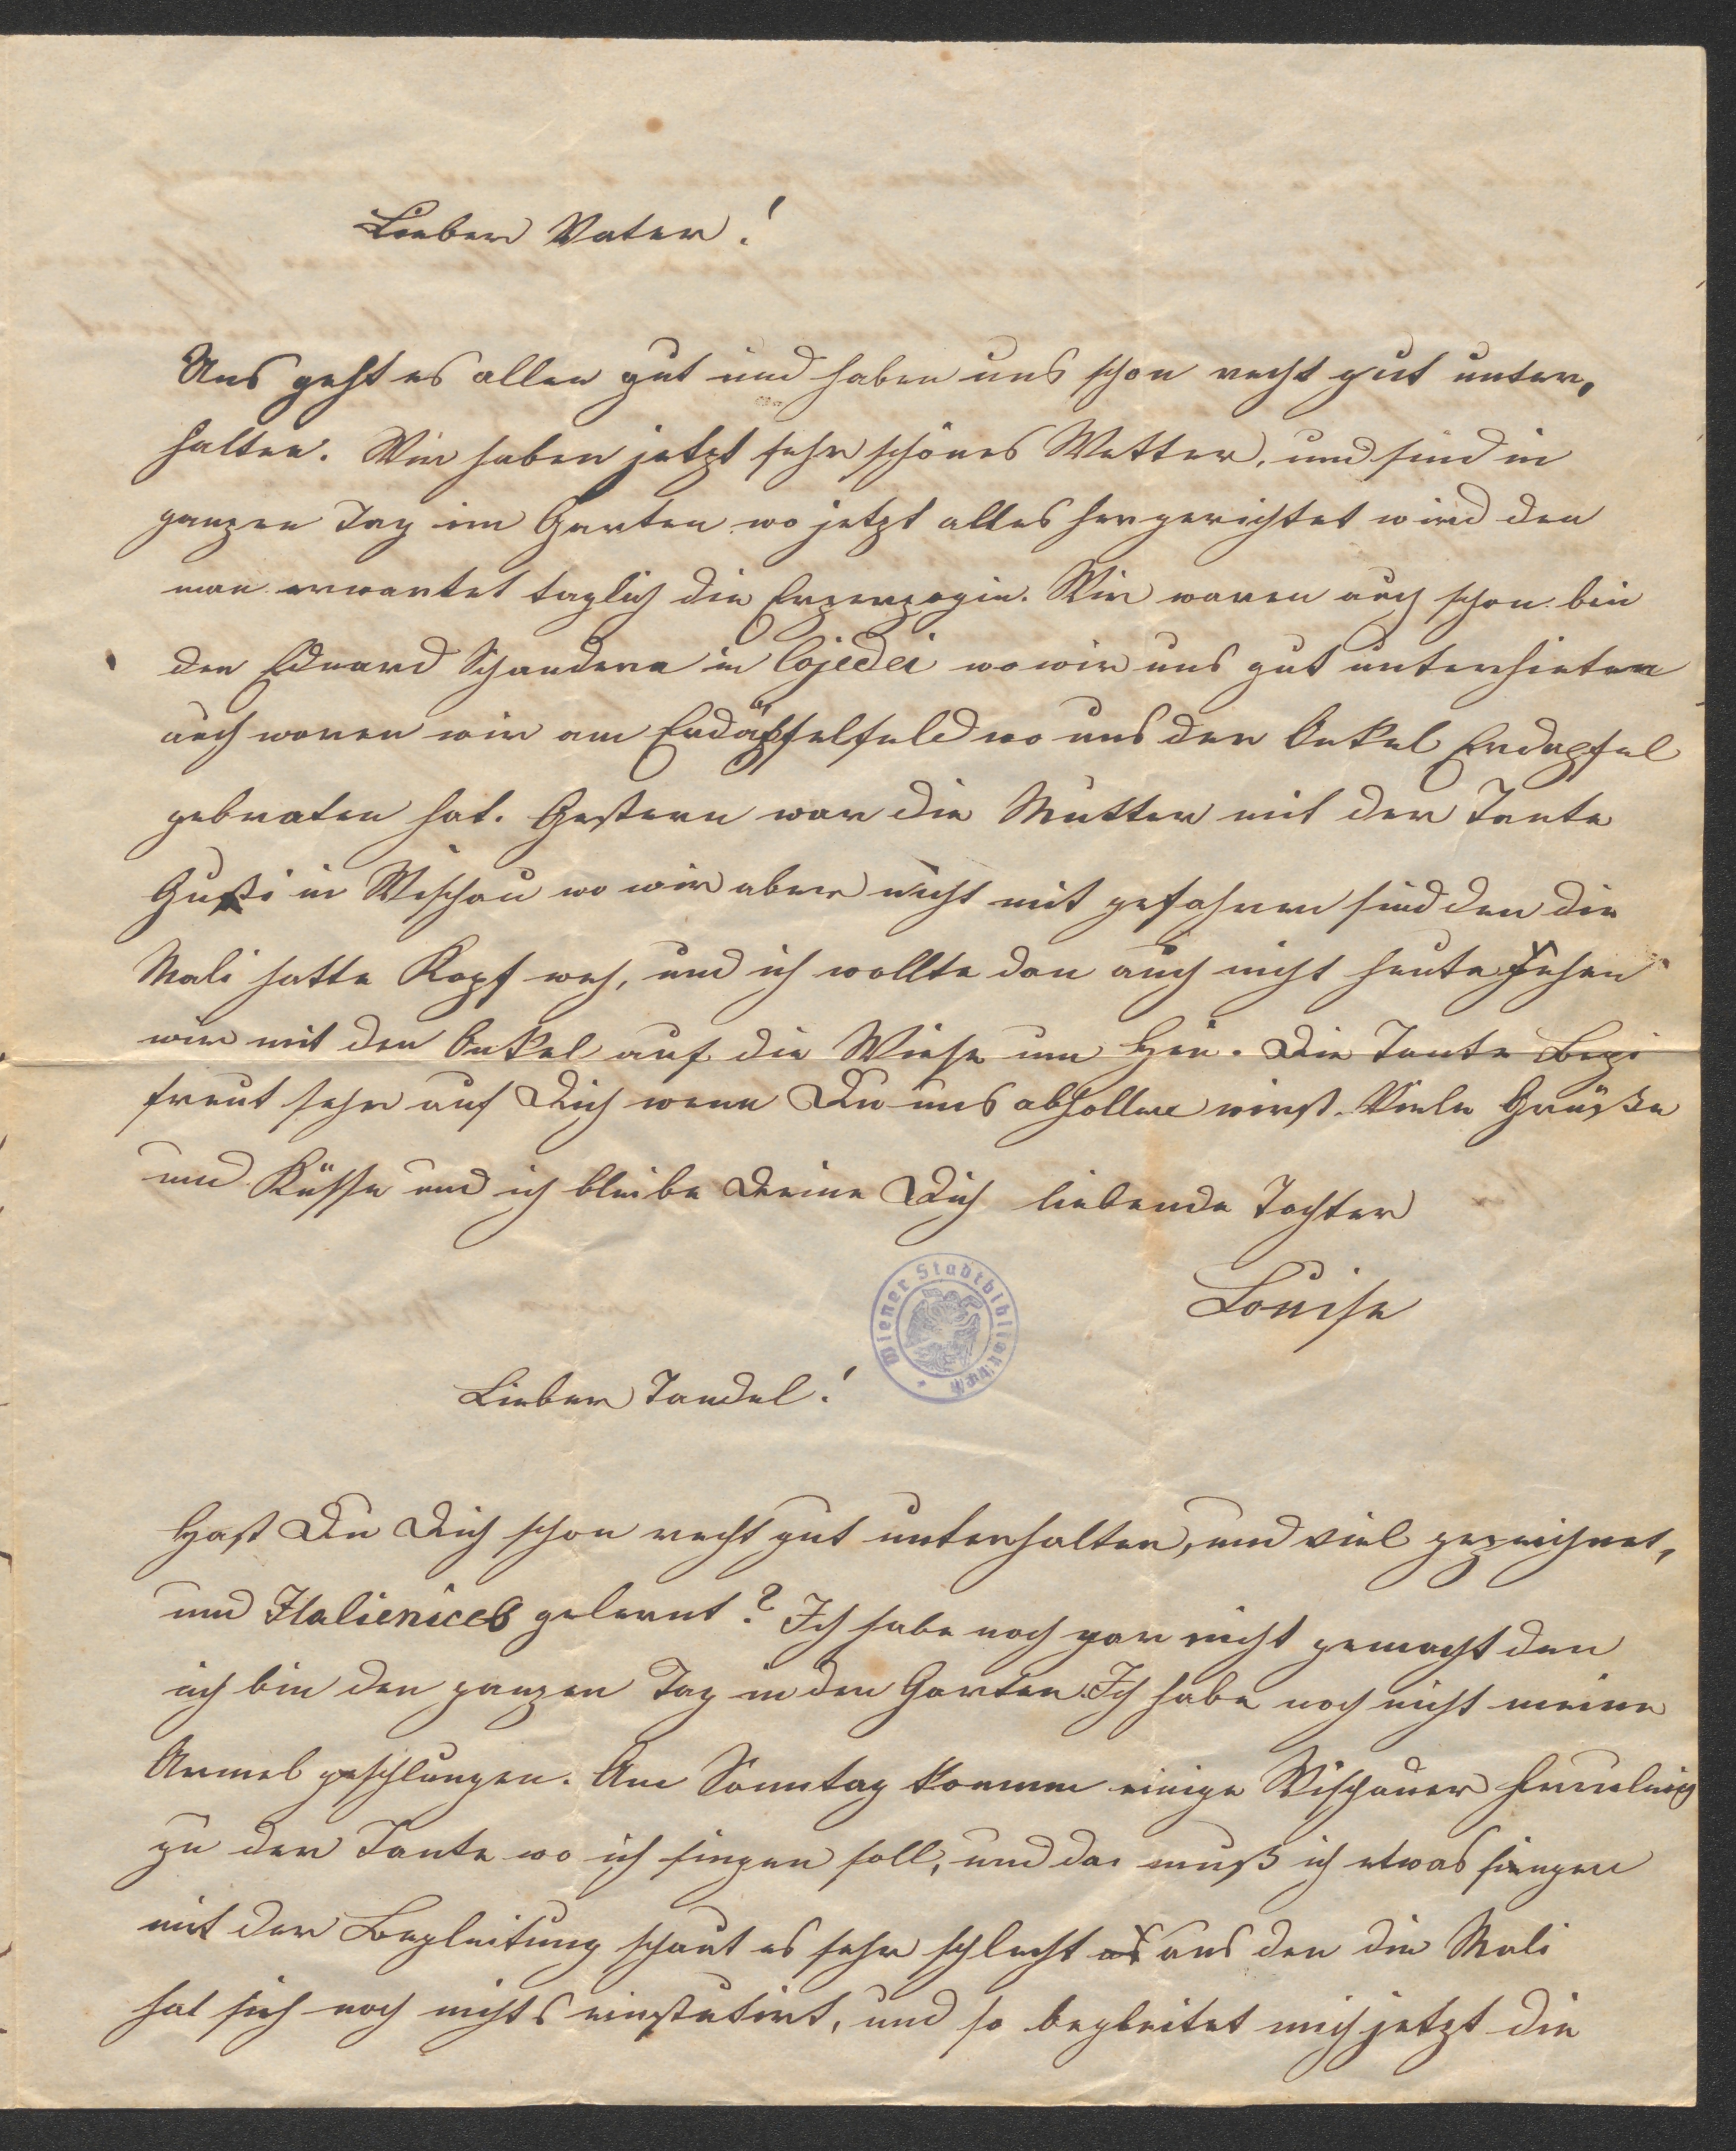 Lieber Vater!
Uns geht es allen gut und haben uns schon recht gut unter,
halten. Wir haben jetzt sehr schönes Wetter, und sind in
ganzen Tag im Garten wo jetzt alles hergerichtet wird den
man erwartet taglich die Erzerzogin. Wir waren auch schon bei
den Eduard Schandera in wo wir uns gut unterhielten
auch waren wir am Erdäpfelfeld wo uns der Onkel Erdapfel
gebraten hat. Gestern war die Mutter mit der Tante
Gusti in Wischau wo wir aber nicht mit gefahren sind den die
Mali hatte Kopf weh, und ich wollte dan auch nicht heute fahren
wir mit den Onkel auf die Wiese um Heu. Die Tante Pepi
freut sehr auf Dich wenn Du uns abhollen wirst. Viele Grüße
und Küsse und ich bleibe Deine Dich liebende Tochter
Louise
Wiener Stadtbibliothek
Lieber Tandel!
Hast Du Dich schon recht gut unterhalten, und viel gezeichnet,
und gelernt? Ich habe noch gar nicht gemacht den
ich bin den ganzen Tag in den Garten. Ich habe noch nicht meine
Armel geschlungen. Am Sonntag kommen einige Wischauer
zu der Tante wo ich singen soll, und da muß ich etwas singen
mit der Begleitung schaut es sehr schlecht aus den die Mali
hat sich noch nichts einstutirt, und so begleitet mich jetzt die